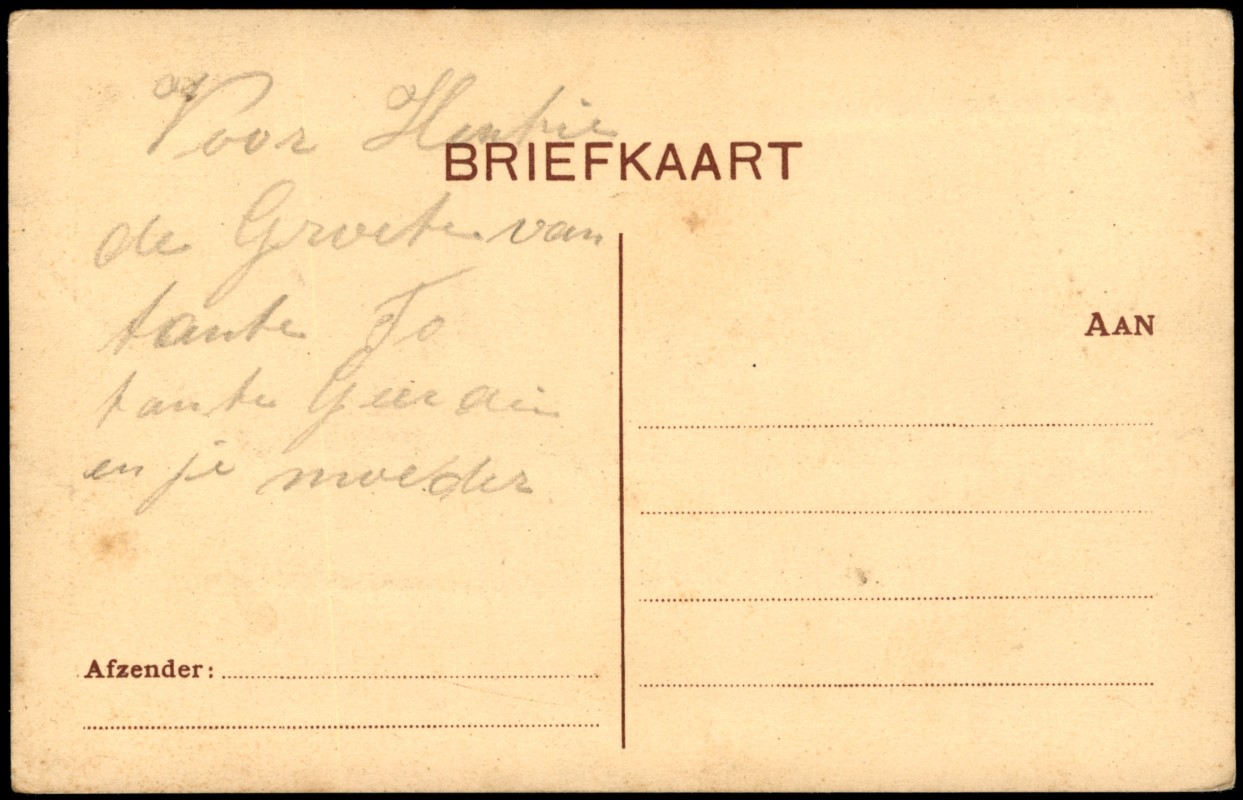 Voor Henkie
BRIEFKAART
de Groete van
tante Jo
tante
en je moeder
AAN
Afzender: